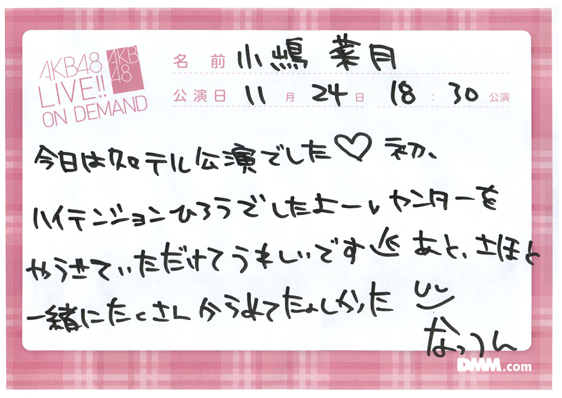 AKB48
LIVE!!
ON DEMAND
AKB
48
名前 小嶋菜月
公演日 11月24日 18:30公演
今日はクロテル公演でした♡ 初、
ハイテンションひろうでしたよー、センターを
やらせていただけてうれしいです あと、さほと
一緒にたくさんからめてたのしかった
なっつん
DMM.com